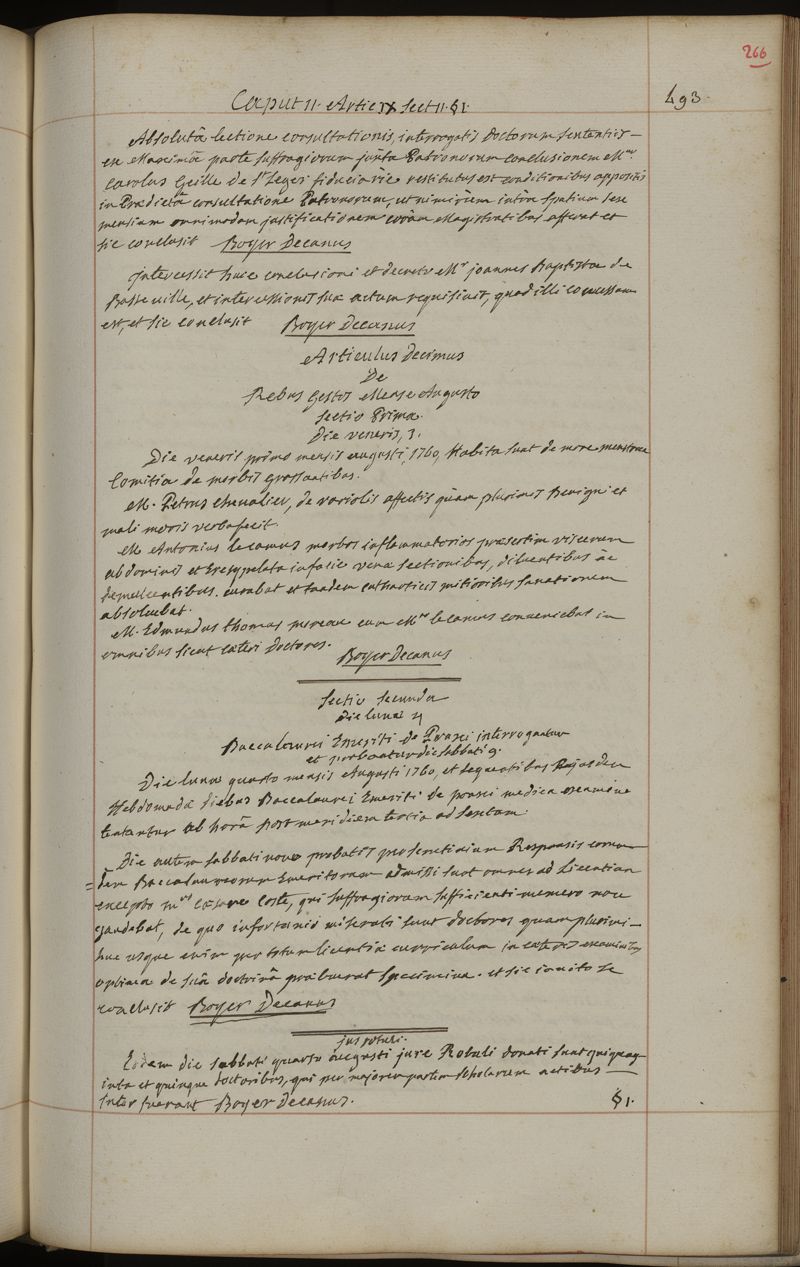 266
Caput 11. Artic IX sect 11. §1.
493.
Absolutâ lectione consultationis, interrogatis Doctorum sententiis —
ex Maximâ parte suffragiorum juxta Patronorum conclusionem M.
Carolus Geille de St Leger fiduciarie restitutus est conditionibus appositis
in Praedictâ consultatione Patronorum, ut nimirùm intra spatium sex
mensium omnimodam justificationem coràm Magistratibus afferat et
sic conclusit Boyer Decanus
Intercessit huic conclusioni et decreto Mr joannes Baptista de
Basseville, et intercessionis suæ actum requisivit, quod illi concessum
est, et sic conclusit Boyer Decanus
Articulus Decimus
De
Rebus Gestis Mense Augusto
sectio Prima.
Die veneris, 1.
Die veneris primo mensis augusti, 1760, Habita sunt de more menstrua
Comitia de morbis grassantibus.
M. Petrus chevalier, de variolis affectis quàm plurimis Benigni et
mali moris verba fecit.
M Antonius le camus morbos inflammatorios præsertim viscerum
abdominis et Eresypelata in facie venæ sectionibus, diluentibus ac
demulcentibus curabat et tandem catharticis mitioribus sanationem
absolvebat.
M. Edmundus thomas moreau cum Mro le camus conveniebat in
omnibus sicut cæteri Doctores.
Boyer Decanus
sectio secunda
Die lunæ 4
Baccalaurei Emeriti de Praxi interrogantur
et probantur die sabbati 9.
Die lunæ quarto mensis Augusti 1760, et sequentibus ejusdem
Hebdomadæ diebus Baccalaurei Emeriti de praxi medica examine
tentantur ab horâ post meridiem tertia ad sextam.
Die autem sabbati nono probatis pro scrutinium Responsis eorum
dem Baccalaureorum Emeritorum admissi sunt omnes ad Licentiam
excepto mro Cæsare Coste, qui suffragiorum sufficienti numero non
gaudebat, de quo infortunio miserati sunt doctores quam plurimi —
huc usque enim per totum licentiæ curriculum in cæteris examinibus
optima de suâ doctrinâ præbuerat specimina. et sic
conclusit Boyer Decanus
jus rotuli.
Eodem die sabbati quarto augusti jure Rotuli donati sunt quinquag
inta et quinque doctoribus, qui per majorem partem scholarum actibus —
interfuerant Boyer Decanus.
§1.